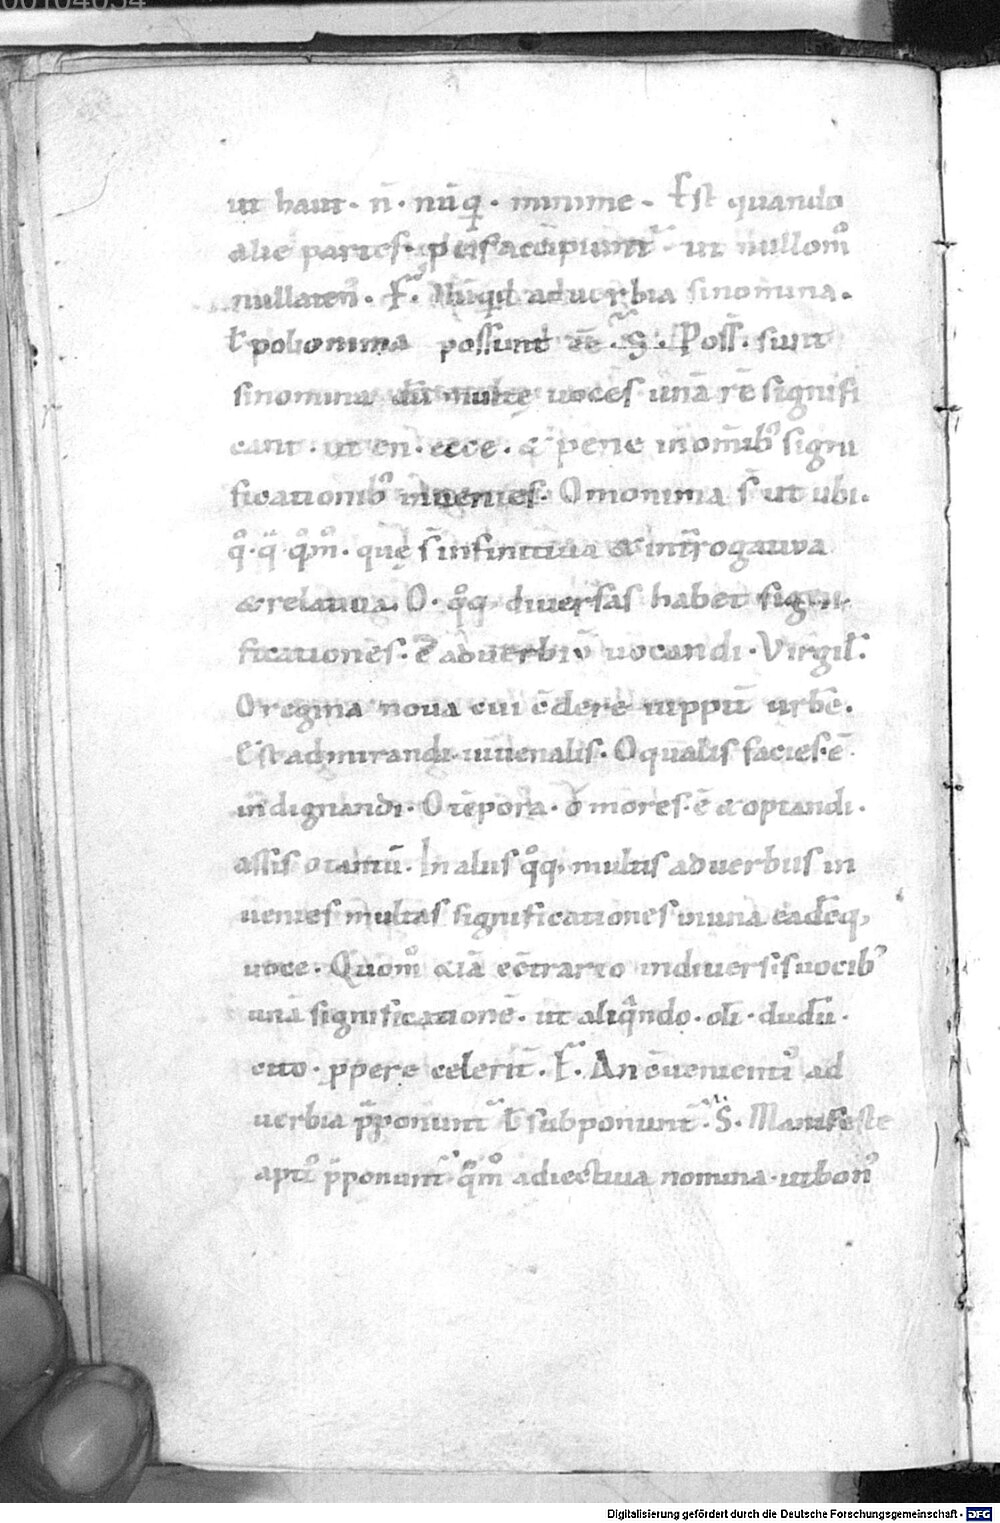 ut haut · n̄ · nūq̨ · minime · Est quando
alie partes · p eis accipiunt᷑ ut nullom̊
nullaten᷒ · F᷒ · Nūqd aduerbia sinonima ·
ł polionima possunt ēē · S᷒ · Poss̄ · sunt
sinonima dū multę uoces unā rē signifi
cant · ut en · ecce · & pene in om̄ib᷒ signi
ficationib᷒ inuenies · Omonima s̄ ut ubi ·
q̊ · q̈ · q̊m̊ · quę s̄ infinitiua & int̄rogatiua
& relatiua · O · q̊q̨ diuersas habet signi·
ficationes · ē aduerbiū uocandi · Virgił ·
O regina noua cui c̄dere iuppit̄ urbē ·
Est admirandi · iuuenalis · O qualis facies · ē
indignandi · O tēpora · o mores · ē & optandi ·
assis o tantū · In aliis q̊q̨ multis aduerbiis in
uenies multas significationes in una eadēq̨
uoce · Quom̊ & iā ec̄trario in diuersis uocib᷒
unā significationē · ut aliq̄ndo · oli · dudū ·
cito · ppere celerit̄ · F᷒ · An c̄uenienti᷒ ad
uerbia p̄ponunt᷑ ł subponunt᷑ · S᷒ · Manifeste
apti᷒ p̄ponunt᷑ q̄m̊ adiectiua nomina · ut bon᷒
Digitalisierung gefördert durch die Deutsche Forschungsgemeinschaft - DFG